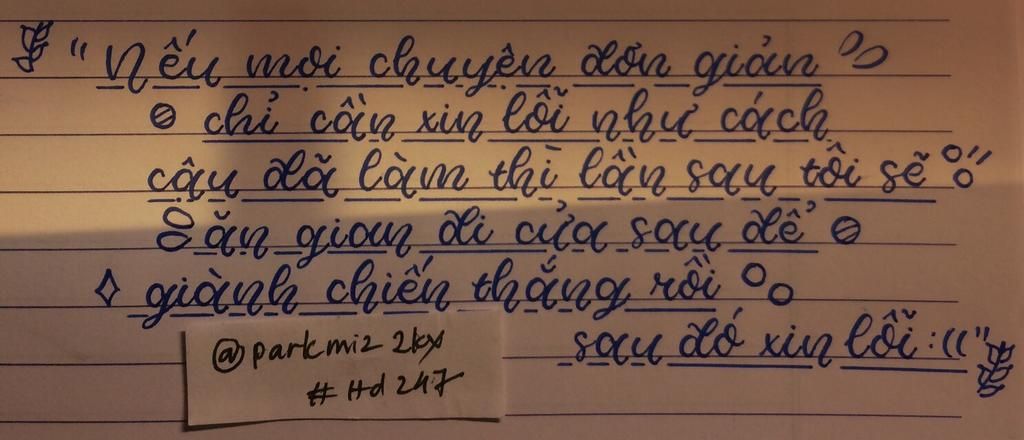 "Nếu mọi chuyện đơn giản
chỉ cần xin lỗi như cách
cậu đã làm thì lần sau tôi sẽ
ăn gian đi cửa sau để
giành chiến thắng rồi
sau đó xin lỗi :(("
@parkmiz 2kx
#Hd247